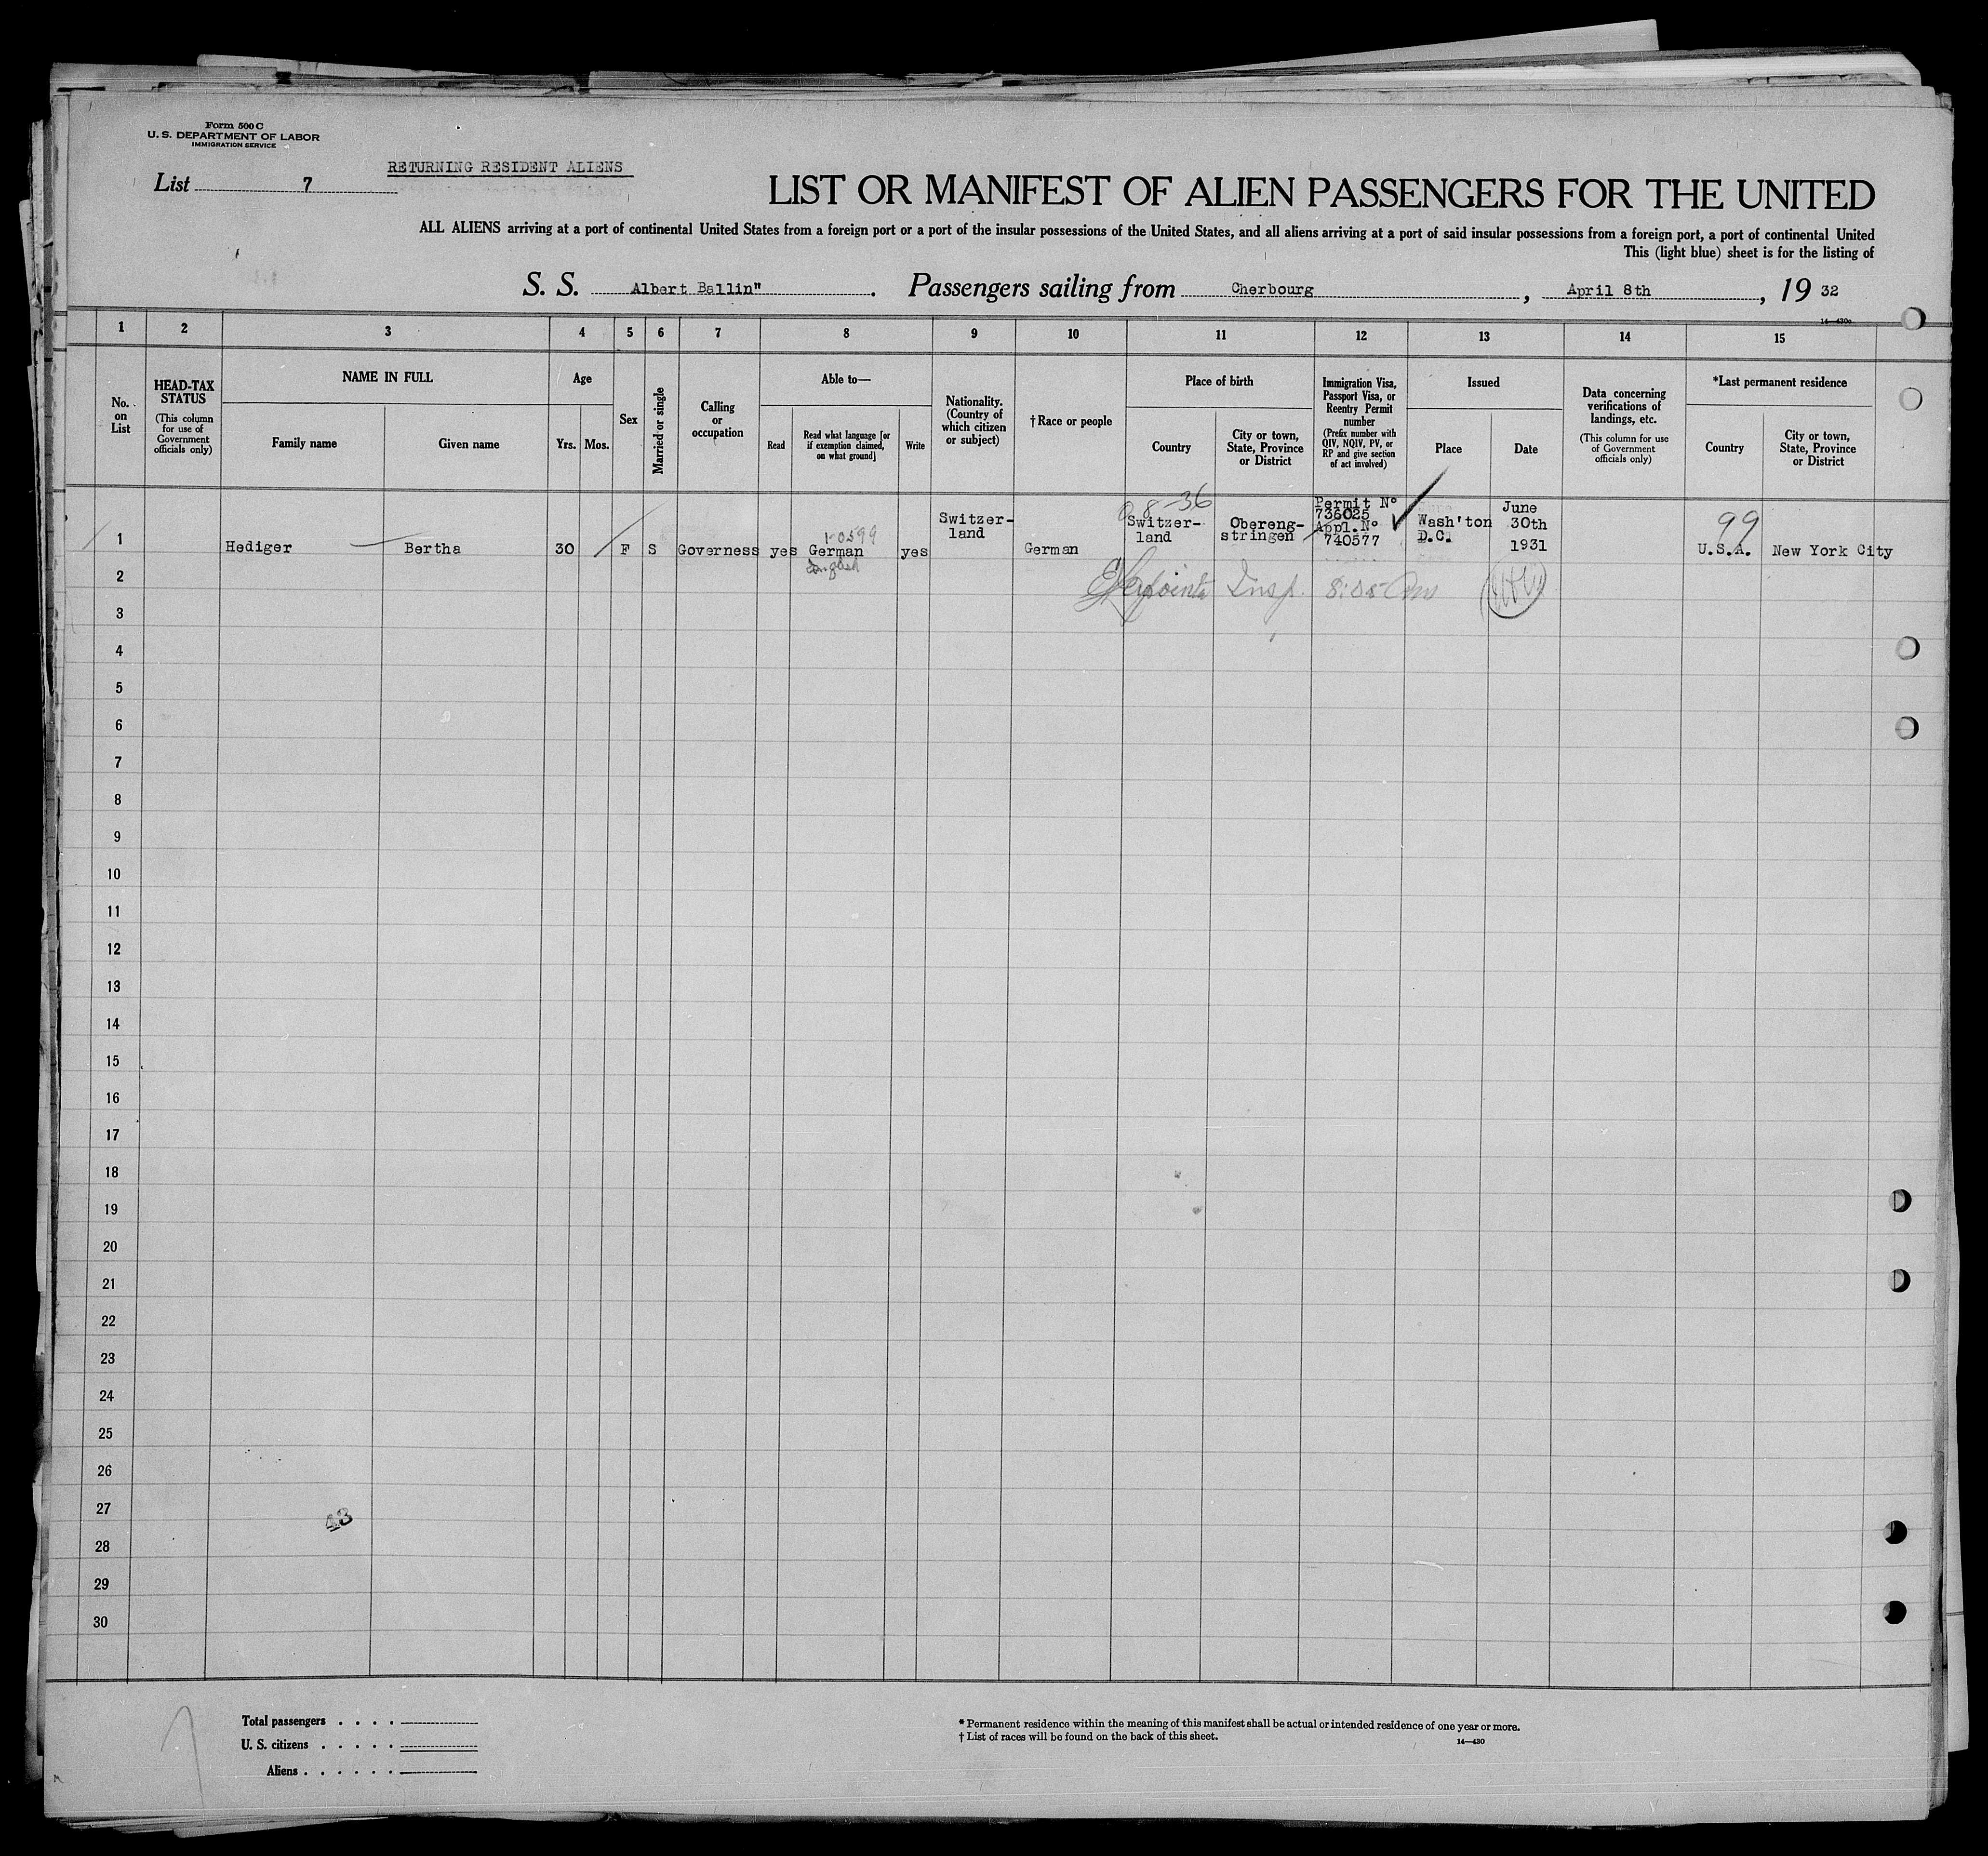 Form 500 C
U. S. DEPARTMENT OF LABOR
IMMIGRATION SERVICE
RETURNING RESIDENT ALIENS
List 7
LIST OR MANIFEST OF ALIEN PASSENGERS FOR THE UNITED
ALL ALIENS arriving at a port of continental United States from a foreign port or a port of the insular possessions of the United States, and all aliens arriving at a port of said insular possessions from a foreign port, a port of continental United
This (light blue) sheet is for the listing of
S. S. Albert Ballin". Passengers sailing from Cherbourg, April 8th, 19 32
14—430a
1 2 3 4 5 6 7 8 9 10 11 12 13 14 15
No. on List
HEAD-TAX STATUS
(This column for use of Government officials only)
NAME IN FULL
Family name
Given name
Age
Yrs. Mos.
Sex
Married or single
Calling or occupation
Able to—
Read
Read what language [or if exemption claimed, on what ground]
Write
Nationality. (Country of which citizen or subject)
†Race or people
Place of birth
Country
City or town, State, Province or District
Immigration Visa, Passport Visa, or Reentry Permit number
(Prefix number with QIV, NQIV, PV, or RP and give section of act involved)
Issued
Place
Date
Data concerning verifications of landings, etc.
(This column for use of Government officials only)
*Last permanent residence
Country
City or town, State, Province or District
1
Hediger
Bertha
30
F
S
Governess
yes
1-0599
German
English
yes
Switzer-
land
German
8-36
Switzer-
land
Obereng-
stringen
Permit No
736025
Appl.No
740577
Wash'ton
D.C.
June
30th
1931
99
U.S.A.
New York City
Insp. 8:05
2
3
4
5
6
7
8
9
10
11
12
13
14
15
16
17
18
19
20
21
22
23
24
25
26
27
43
28
29
30
Total passengers . . . .
U. S. citizens . . . . .
Aliens . . . . . .
* Permanent residence within the meaning of this manifest shall be actual or intended residence of one year or more.
† List of races will be found on the back of this sheet.
14—430